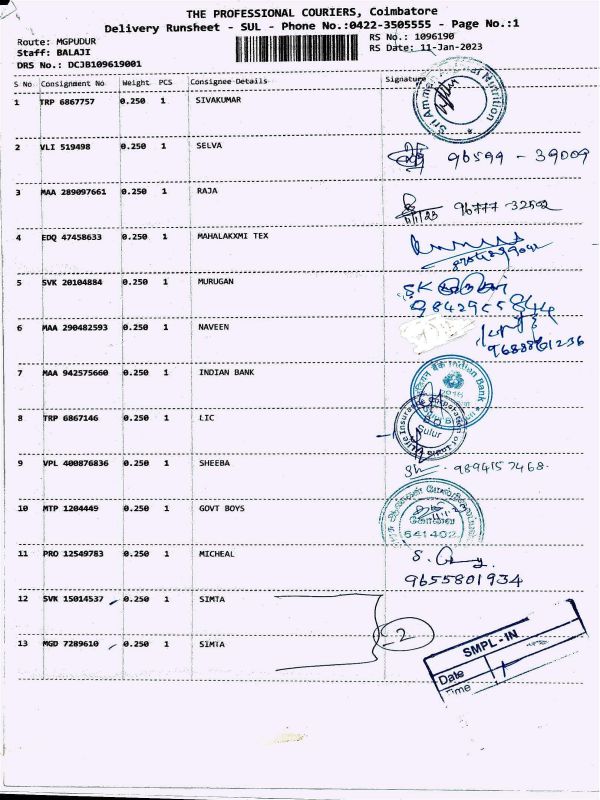 THE PROFESSIONAL COURIERS, Coimbatore
Delivery Runsheet - SUL - Phone No.:0422-3505555 - Page No.:1
Route: MGPUDUR
Staff: BALAJI
DRS No.: DCJB109619001
RS No.: 1096190
RS Date: 11-Jan-2023
S No Consignment No Weight PCS Consignee Details Signature
1 TRP 6867757 0.250 1 SIVAKUMAR
Sri Amman Nutrition
2 VLI 519498 0.250 1 SELVA 96599 - 39009
3 MAA 289097661 0.250 1 RAJA 96777 32502
11/1/23
4 EDQ 47458633 0.250 1 MAHALAKXMI TEX
5 SVK 20104884 0.250 1 MURUGAN SK
9842955844
6 MAA 290482593 0.250 1 NAVEEN
9688861236
7 MAA 942575660 0.250 1 INDIAN BANK
Indian Bank
8 TRP 6867146 0.250 1 LIC
Life Insurance Corporation of India
Sulur
9 VPL 400876836 0.250 1 SHEEBA 9894157468.
10 MTP 1204449 0.250 1 GOVT BOYS
கோவை
641402
11 PRO 12549783 0.250 1 MICHEAL S.
9655801934
12 SVK 15014537 0.250 1 SIMTA
2
13 MGD 7289610 0.250 1 SIMTA
SMPL - IN
Date
Time